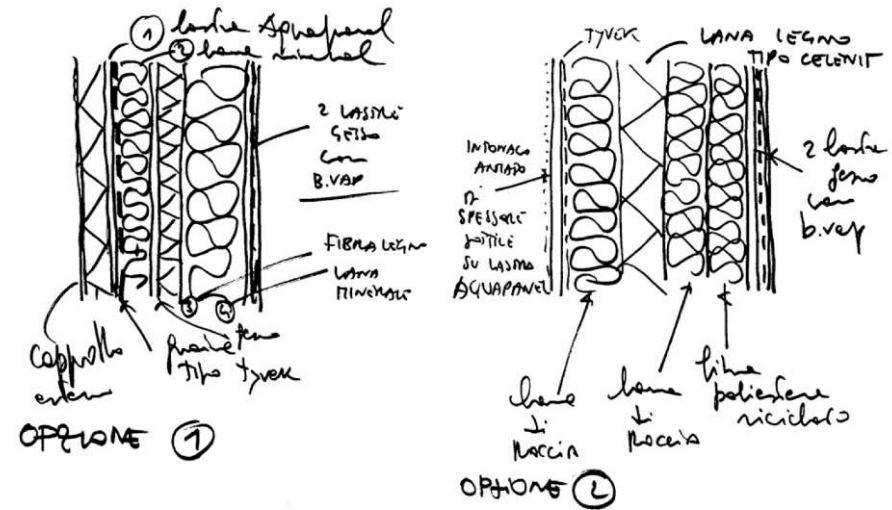 ① lastra Aquapanel
② lana mineral
2 LASTRE
GESSO
con
B.VAP
FIBRA LEGNO
LANA
MINERALE
③ ④
cappotto
esterno
guaine
tipo tyvek
OPZIONE ①
TYVEK
LANA LEGNO
TIPO CELENIT
INTONACO
ARMATO
DI
SPESSORE
SOTTILE
SU LASTRA
AQUAPANEL
2 lastre
gesso
con
b.vap
lana
di
roccia
lana
di
roccia
fibra
poliestere
riciclato
OPZIONE ②